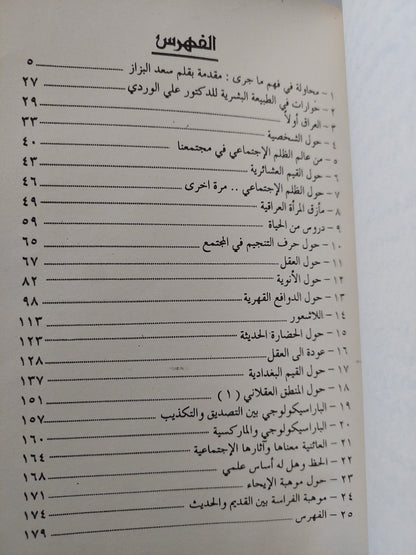 الفهرس
١ - محاولة في فهم ما جرى : مقدمة بقلم سعد البزاز ٥
٢ - حوارات في الطبيعة البشرية للدكتور علي الوردي ٢٧
٣ - العراق أولاً ٢٩
٤ - حول الشخصية ٣٣
٥ - من عالم الظلم الإجتماعي في مجتمعنا ٤٠
٦ - حول القيم العشائرية ٤٣
٧ - حول الظلم الإجتماعي .. مرة اخرى ٤٦
٨ - مأزق المرأة العراقية ٤٩
٩ - دروس من الحياة ٥٩
١٠ - حول حرف التنجيم في المجتمع ٦٥
١١ - حول العقل ٦٧
١٢ - حول الأنوية ٨٢
١٣ - حول الدوافع القهرية ٩٨
١٤ - اللاشعور ١١٣
١٥ - حول الحضارة الحديثة ١٢٣
١٦ - عودة الى العقل ١٢٨
١٧ - حول القيم البغدادية ١٣٧
١٨ - حول المنطق العقلاني ( ١ ) ١٥١
١٩ - الباراسيكولوجي بين التصديق والتكذيب ١٥٧
٢٠ - الباراسيكولوجي والماركسية ١٦٠
٢١ - العائنية معناها وآثارها الإجتماعية ١٦٤
٢٢ - الحظ وهل له أساس علمي ١٦٨
٢٣ - حول موهبة الإيحاء ١٧١
٢٤ - موهبة الفراسة بين القديم والحديث ١٧٤
٢٥ - الفهرس ١٧٩